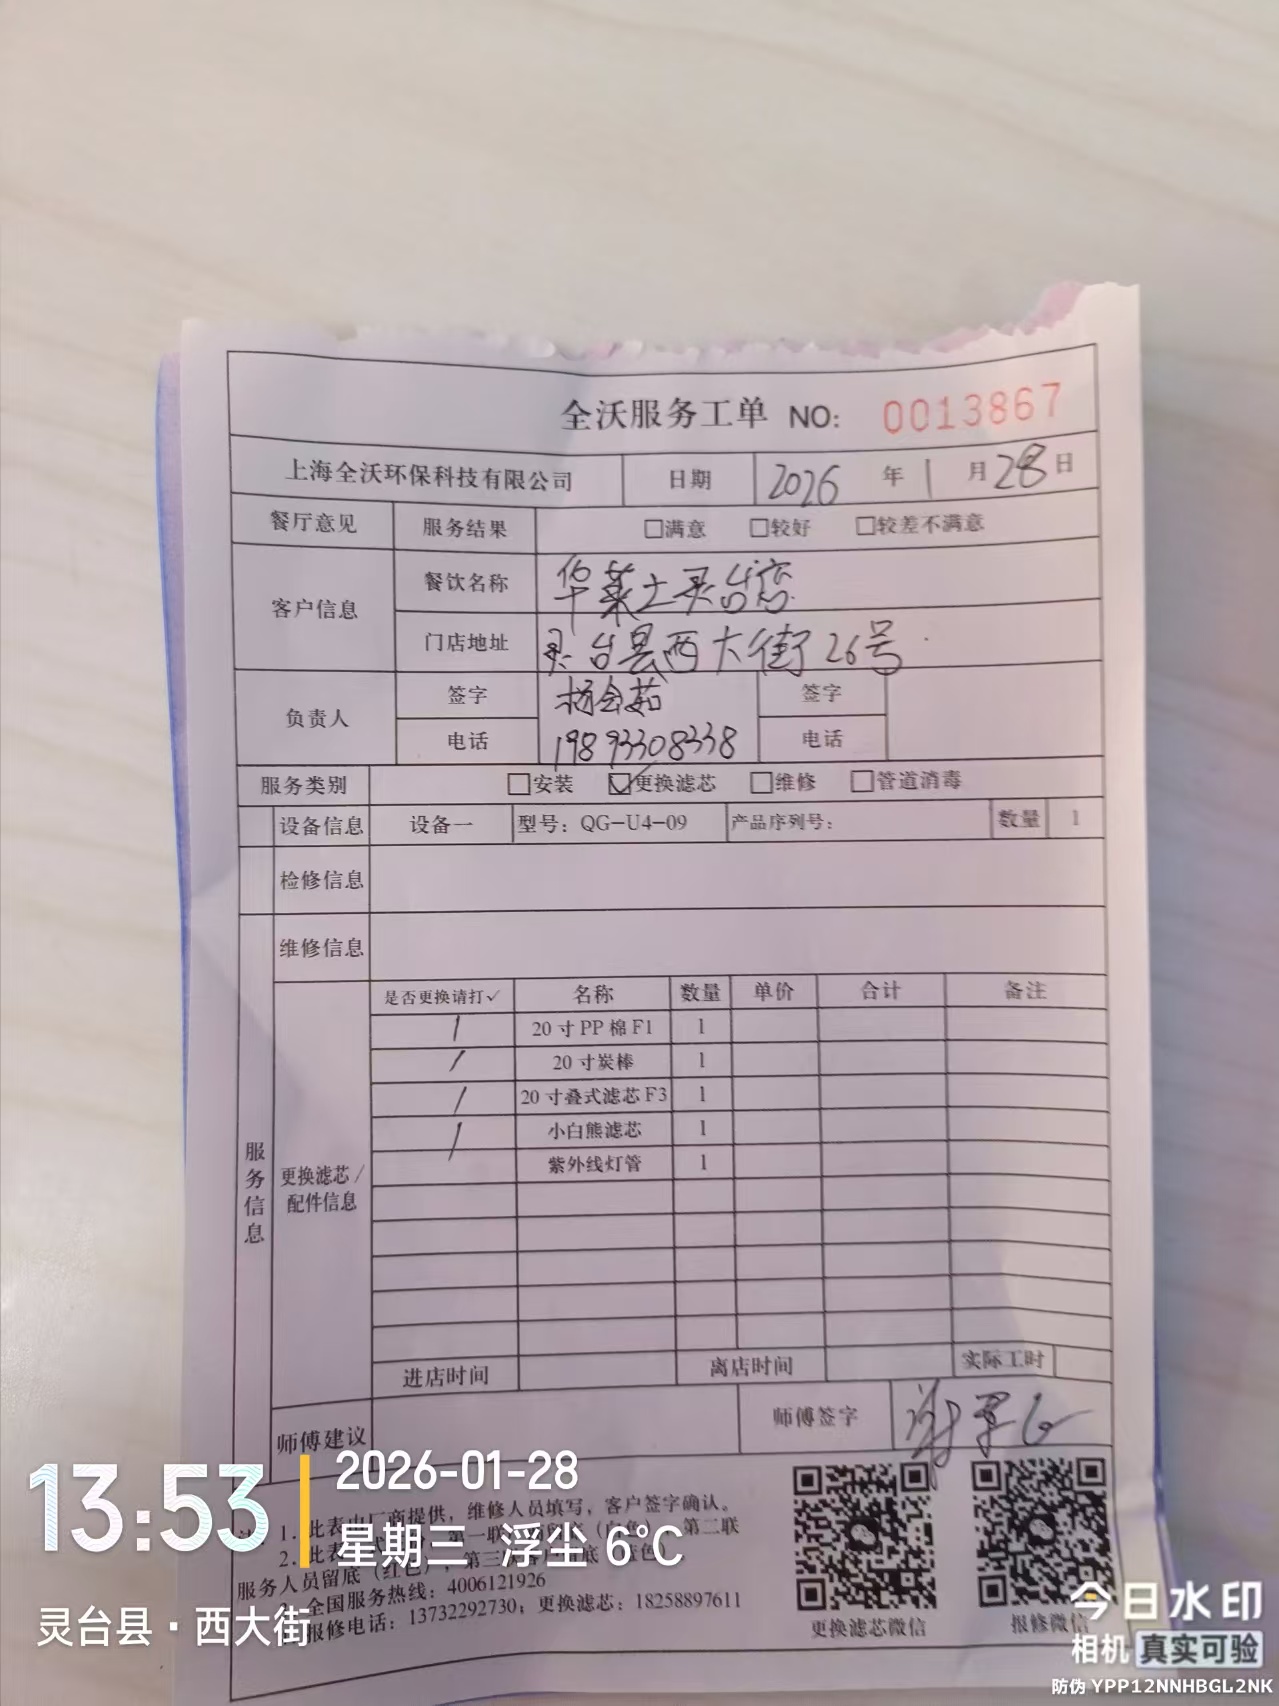 全沃服务工单 NO: 0013867
上海全沃环保科技有限公司 日期 2026 年 1 月 28 日
餐厅意见 服务结果 □满意 □较好 □较差不满意
客户信息 餐饮名称 华莱士灵台店
门店地址 灵台县西大街26号
负责人 签字 杨会茹 签字
电话 19893308338 电话
服务类别 □安装 ☑更换滤芯 □维修 □管道消毒
设备信息 设备一 型号：QG-U4-09 产品序列号： 数量 1
检修信息
维修信息
服务信息
更换滤芯/配件信息
是否更换请打✓ 名称 数量 单价 合计 备注
/ 20寸PP棉F1 1
/ 20寸炭棒 1
/ 20寸叠式滤芯F3 1
/ 小白熊滤芯 1
紫外线灯管 1
进店时间 离店时间 实际工时
师傅建议 师傅签字
1. 此表由厂商提供，维修人员填写，客户签字确认。
2. 此表 第二联
服务人员留底（红色），第三
全国服务热线：4006121926
报修电话：13732292730；更换滤芯：18258897611
更换滤芯微信 报修微信
13:53
2026-01-28
星期三 浮尘 6℃
灵台县·西大街
今日水印
相机 真实可验
防伪 YPP12NNHBGL2NK